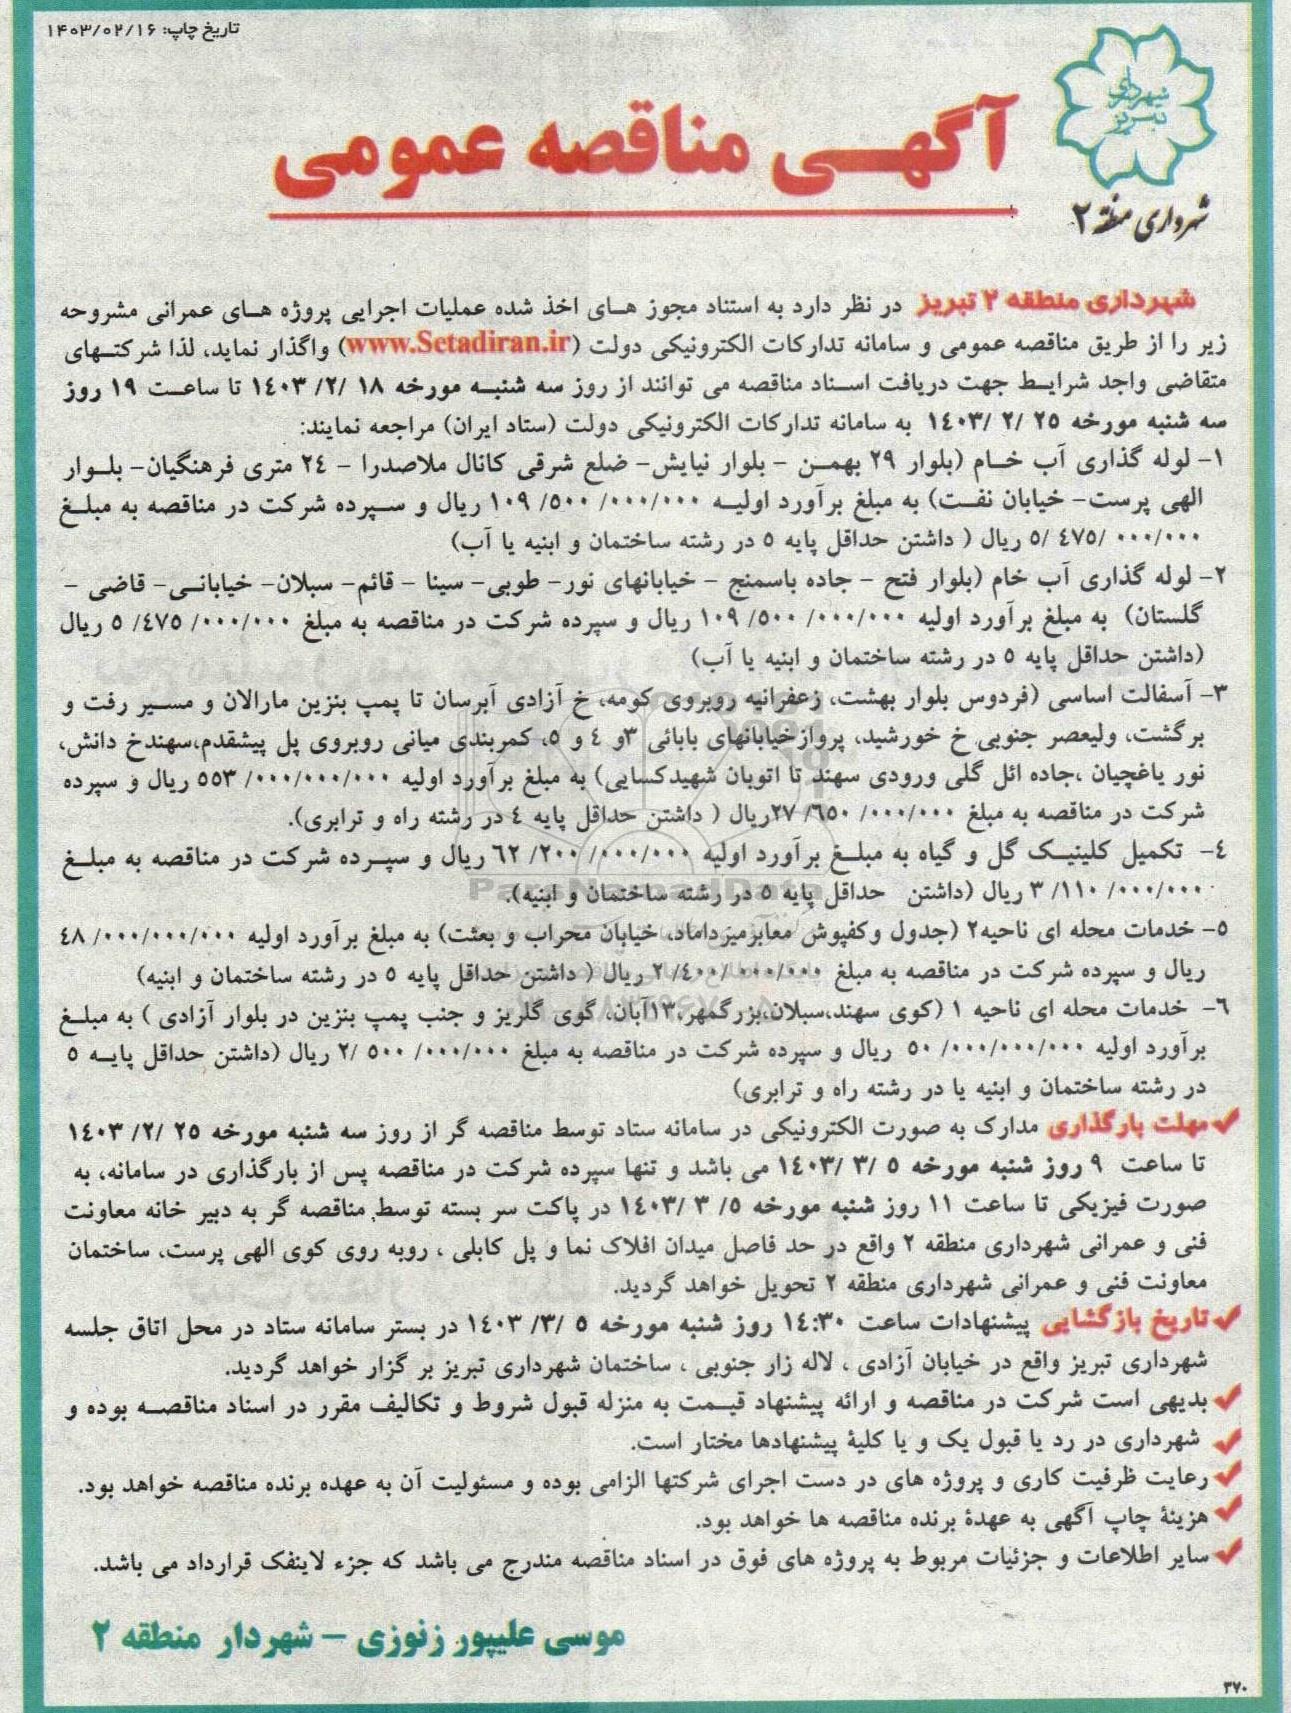 تاریخ چاپ: ۱۴۰۳/۰۲/۱۶
شهرداری
تبریز
شهرداری منطقه ۲
آگهی مناقصه عمومی
شهرداری منطقه ۲ تبریز در نظر دارد به استناد مجوز های اخذ شده عملیات اجرایی پروژه های عمرانی مشروحه
زیر را از طریق مناقصه عمومی و سامانه تدارکات الکترونیکی دولت (www.Setadiran.ir) واگذار نماید، لذا شرکتهای
متقاضی واجد شرایط جهت دریافت اسناد مناقصه می توانند از روز سه شنبه مورخه ۱۸ /۲/ ۱۴۰۳ تا ساعت ۱۹ روز
سه شنبه مورخه ۲۵ /۲ /۱۴۰۳ به سامانه تدارکات الکترونیکی دولت (ستاد ایران) مراجعه نمایند:
۱- لوله گذاری آب خام (بلوار ۲۹ بهمن - بلوار نیایش- ضلع شرقی کانال ملاصدرا - ۲۴ متری فرهنگیان- بلوار
الهی پرست- خیابان نفت) به مبلغ برآورد اولیه ۰۰۰/۰۰۰/ ۵۰۰/ ۱۰۹ ریال و سپرده شرکت در مناقصه به مبلغ
۰۰۰/۰۰۰ /۴۷۵ /۵ ریال ( داشتن حداقل پایه ۵ در رشته ساختمان و ابنیه یا آب)
۲- لوله گذاری آب خام (بلوار فتح - جاده باسمنج - خیابانهای نور- طوبی- سینا - قائم- سبلان- خیابانی- قاضی -
گلستان) به مبلغ برآورد اولیه ۰۰۰/۰۰۰/ ۵۰۰/ ۱۰۹ ریال و سپرده شرکت در مناقصه به مبلغ ۰۰۰/۰۰۰/ ۴۷۵/ ۵ ریال
(داشتن حداقل پایه ۵ در رشته ساختمان و ابنیه یا آب)
۳- آسفالت اساسی (فردوس بلوار بهشت، زعفرانیه روبروی کومه، خ آزادی آبرسان تا پمپ بنزین مارالان و مسیر رفت و
برگشت، ولیعصر جنوبی خ خورشید، پروازخیابانهای بابائی ۳و ۴ و ۵، کمربندی میانی روبروی پل پیشقدم،سهندخ دانش،
نور یاغچیان ،جاده ائل گلی ورودی سهند تا اتوبان شهیدکسایی) به مبلغ برآورد اولیه ۰۰۰/۰۰۰/۰۰۰/ ۵۵۳ ریال و سپرده
شرکت در مناقصه به مبلغ ۰۰۰/۰۰۰/ ۶۵۰/ ۲۷ریال ( داشتن حداقل پایه ۴ در رشته راه و ترابری).
۴- تکمیل کلینیک گل و گیاه به مبلغ برآورد اولیه ۰۰۰/۰۰۰/ ۲۰۰/ ۶۲ ریال و سپرده شرکت در مناقصه به مبلغ
۰۰۰/۰۰۰/ ۱۱۰/ ۳ ریال (داشتن حداقل پایه ۵ در رشته ساختمان و ابنیه).
ParsNamadData
۵- خدمات محله ای ناحیه۲ (جدول وکفپوش معابرمیرداماد، خیابان محراب و بعثت) به مبلغ برآورد اولیه ۰۰۰/۰۰۰/۰۰۰/ ۴۸
ریال و سپرده شرکت در مناقصه به مبلغ ۰۰۰/۰۰۰ /۴۰۰/ ۲ ریال ( داشتن حداقل پایه ۵ در رشته ساختمان و ابنیه)
۶- خدمات محله ای ناحیه ۱ (کوی سهند،سبلان،بزرگمهر،۱۳آبان، گوی گلریز و جنب پمپ بنزین در بلوار آزادی ) به مبلغ
برآورد اولیه ۰۰۰/۰۰۰/۰۰۰/ ۵۰ ریال و سپرده شرکت در مناقصه به مبلغ ۰۰۰/۰۰۰/ ۵۰۰ /۲ ریال (داشتن حداقل پایه ۵
در رشته ساختمان و ابنیه یا در رشته راه و ترابری)
مهلت بارگذاری مدارک به صورت الکترونیکی در سامانه ستاد توسط مناقصه گر از روز سه شنبه مورخه ۲۵ /۲/ ۱۴۰۳
تا ساعت ۹ روز شنبه مورخه ۵ /۳ /۱۴۰۳ می باشد و تنها سپرده شرکت در مناقصه پس از بارگذاری در سامانه، به
صورت فیزیکی تا ساعت ۱۱ روز شنبه مورخه ۵/ ۳ /۱۴۰۳ در پاکت سر بسته توسط مناقصه گر به دبیر خانه معاونت
فنی و عمرانی شهرداری منطقه ۲ واقع در حد فاصل میدان افلاک نما و پل کابلی ، روبه روی کوی الهی پرست، ساختمان
معاونت فنی و عمرانی شهرداری منطقه ۲ تحویل خواهد گردید.
تاریخ بازگشایی پیشنهادات ساعت ۱۴:۳۰ روز شنبه مورخه ۵ /۳/ ۱۴۰۳ در بستر سامانه ستاد در محل اتاق جلسه
شهرداری تبریز واقع در خیابان آزادی ، لاله زار جنوبی ، ساختمان شهرداری تبریز بر گزار خواهد گردید.
بدیهی است شرکت در مناقصه و ارائه پیشنهاد قیمت به منزله قبول شروط و تکالیف مقرر در اسناد مناقصه بوده و
شهرداری در رد یا قبول یک و یا کلیهٔ پیشنهادها مختار است.
رعایت ظرفیت کاری و پروژه های در دست اجرای شرکتها الزامی بوده و مسئولیت آن به عهده برنده مناقصه خواهد بود.
هزینهٔ چاپ آگهی به عهدهٔ برنده مناقصه ها خواهد بود.
سایر اطلاعات و جزئیات مربوط به پروژه های فوق در اسناد مناقصه مندرج می باشد که جزء لاینفک قرارداد می باشد.
موسی علیپور زنوزی - شهردار منطقه ۲
۳۷۰